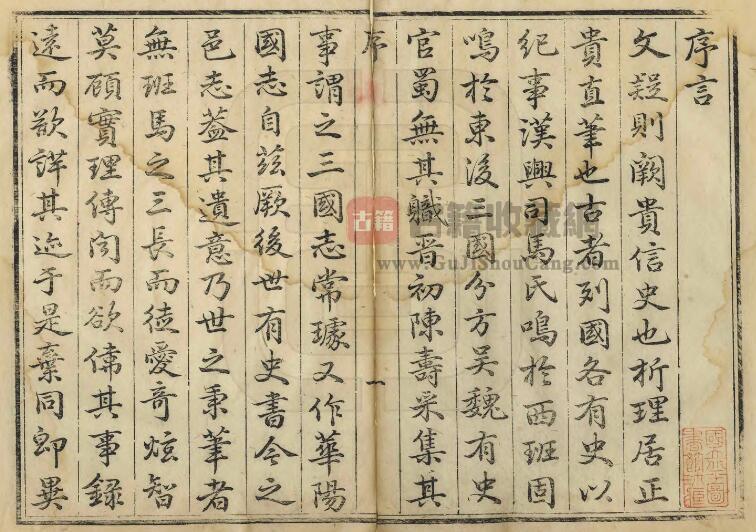 序言
文疑則闕貴信史也析理居正
貴直筆也古者列國各有史以
紀事漢興司馬氏鳴於西班固
鳴於東後三國分方吴魏有史
官蜀無其職晋初陳壽采集其
序
一
事謂之三國志常璩又作華陽
國志自兹厥後世有史書今之
邑志葢其遺意乃世之秉筆者
無班馬之三長而徒愛奇炫智
莫顧實理傳聞而欲俻其事錄
遠而欲詳其迹于是棄同卽異
古籍
書籍收藏網
www.GuJiShouCang.com